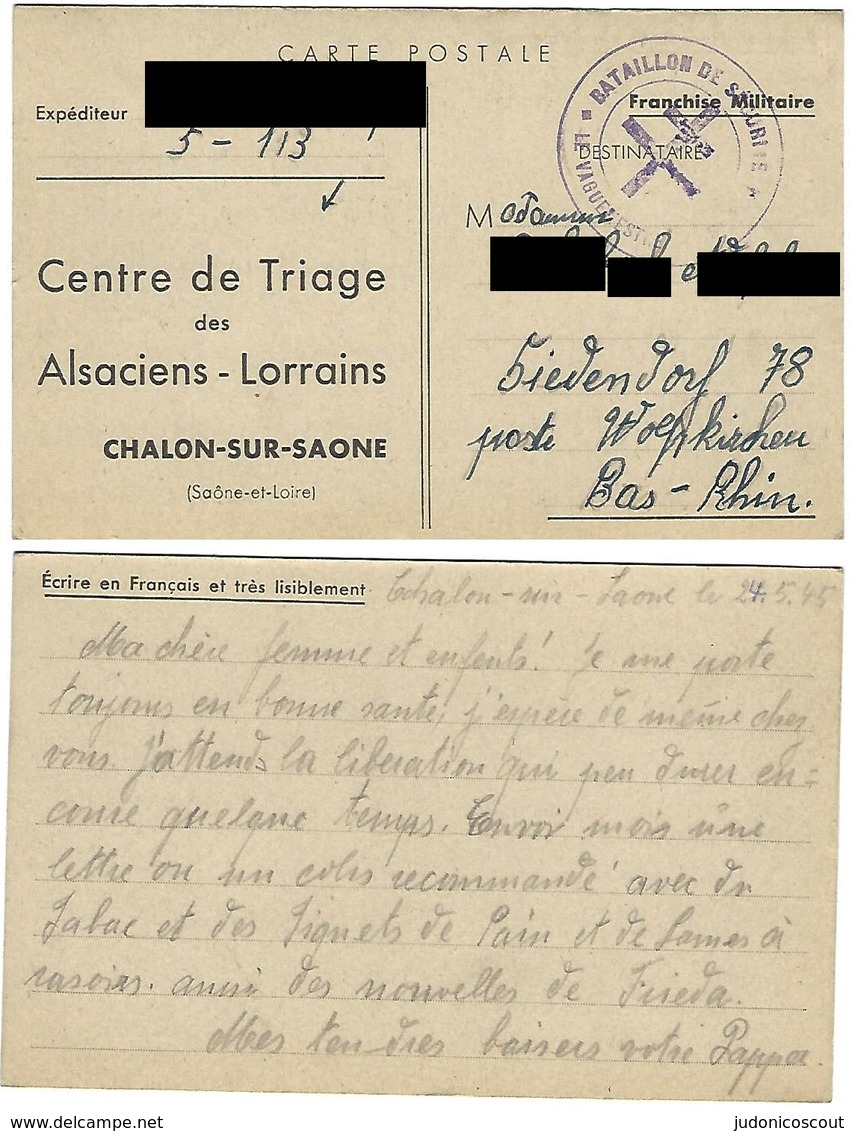 CARTE POSTALE
Expéditeur
5 - 113
Centre de Triage
des
Alsaciens - Lorrains
CHALON-SUR-SAONE
(Saône-et-Loire)
BATAILLON DE SÉCURITÉ
LE VAGUEMESTRE
Franchise Militaire
DESTINATAIRE
Madamme
Siedendorf 78
poste Wolfskirchen
Bas - Rhin.
Écrire en Français et très lisiblement
Chalon-sur-Saone le 24.5.45
Ma chère femme et enfents! Je me porte
toujours en bonne sante, j'espère de même chez
vous. J'attends la liberation qui peu durer en=
core quelque temps. Envoi mois une
lettre ou un colis recommandé avec du
Tabac et des Tiquets de Pain et de Lames à
rasoirs. aussi des nouvelles de Frieda.
Mes tendres baisers votre Pappa.
www.delcampe.net
judonicoscout